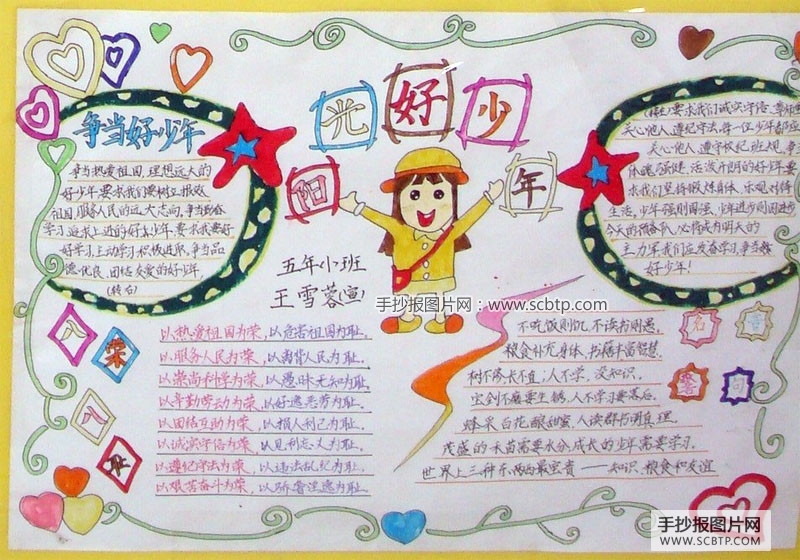 阳光好少年
争当好少年
争当热爱祖国、理想远大的
好少年要求我们要树立报效
祖国、服务人民的远大志向,争当勤奋
学习、追求上进的好少年,要求我要好
好学习,主动学习积极进取,争当品
德优良、团结友爱的好少年,
(转右)
(接左)要求我们诚实守信、
关心他人、遵纪守法
关心他人、遵守校纪班规,争
体魄强健、活泼开朗的好少年要
求我们坚持锻炼身体、乐观对待
生活,少年强则国强、少年进步则国进步
今天的预备队,必将成为明天的
主力军我们应发奋学习,争当
好少年!
五年小班
王雪蓉(宣)
手抄报图片网:www.scbtp.com
八
荣
八
耻
以热爱祖国为荣,以危害祖国为耻。
以服务人民为荣,以离背人民为耻。
以崇尚科学为荣,以愚昧无知为耻。
以辛勤劳动为荣,以好逸恶劳为耻。
以团结互助为荣,以损人利己为耻。
以诚实守信为荣,以见利忘义为耻。
以遵纪守法为荣,以违法乱纪为耻。
以艰苦奋斗为荣,以骄奢淫逸为耻。
名
言
警
句
不吃饭则饥,不读书则愚。
粮食补充身体,书籍丰富智慧。
树不修长不直;人不学,没知识。
宝剑不磨要生锈,人不学习要落后。
蜂采百花酿甜蜜,人读群书明真理。
茂盛的禾苗需要水分,成长的少年需要学习。
世界上三种东西最宝贵——知识、粮食和友谊
手抄报图片网
WWW.SCBTP.COM